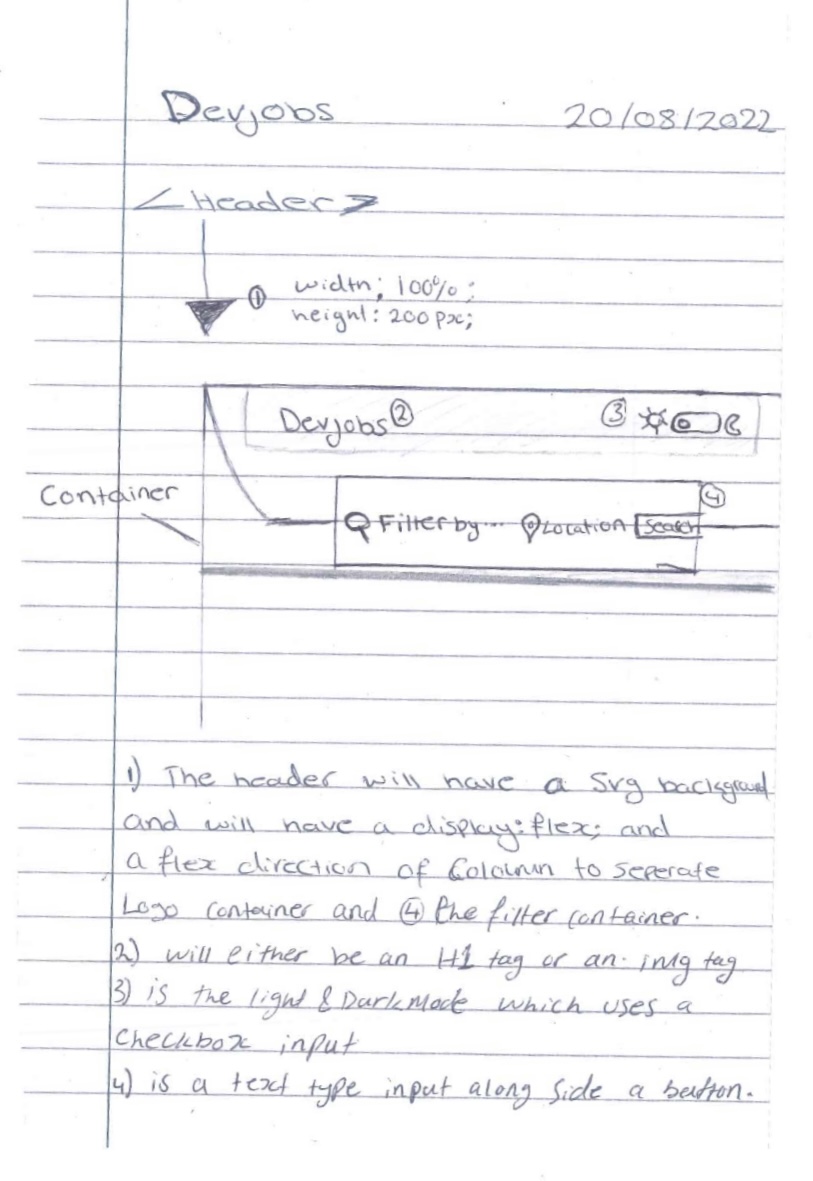 Devjobs 20/08/2022
<Header>
① width; 100%;
height: 200px;
Devjobs ② ③
Container
④
Filter by... Location Search
1) The header will have a Svg background
and will have a display: flex; and
a flex direction of Coloumn to seperate
Logo container and ④ the filter container.
2) will either be an H1 tag or an img tag
3) is the light & Dark Mode which uses a
checkbox input
4) is a text type input along side a button.